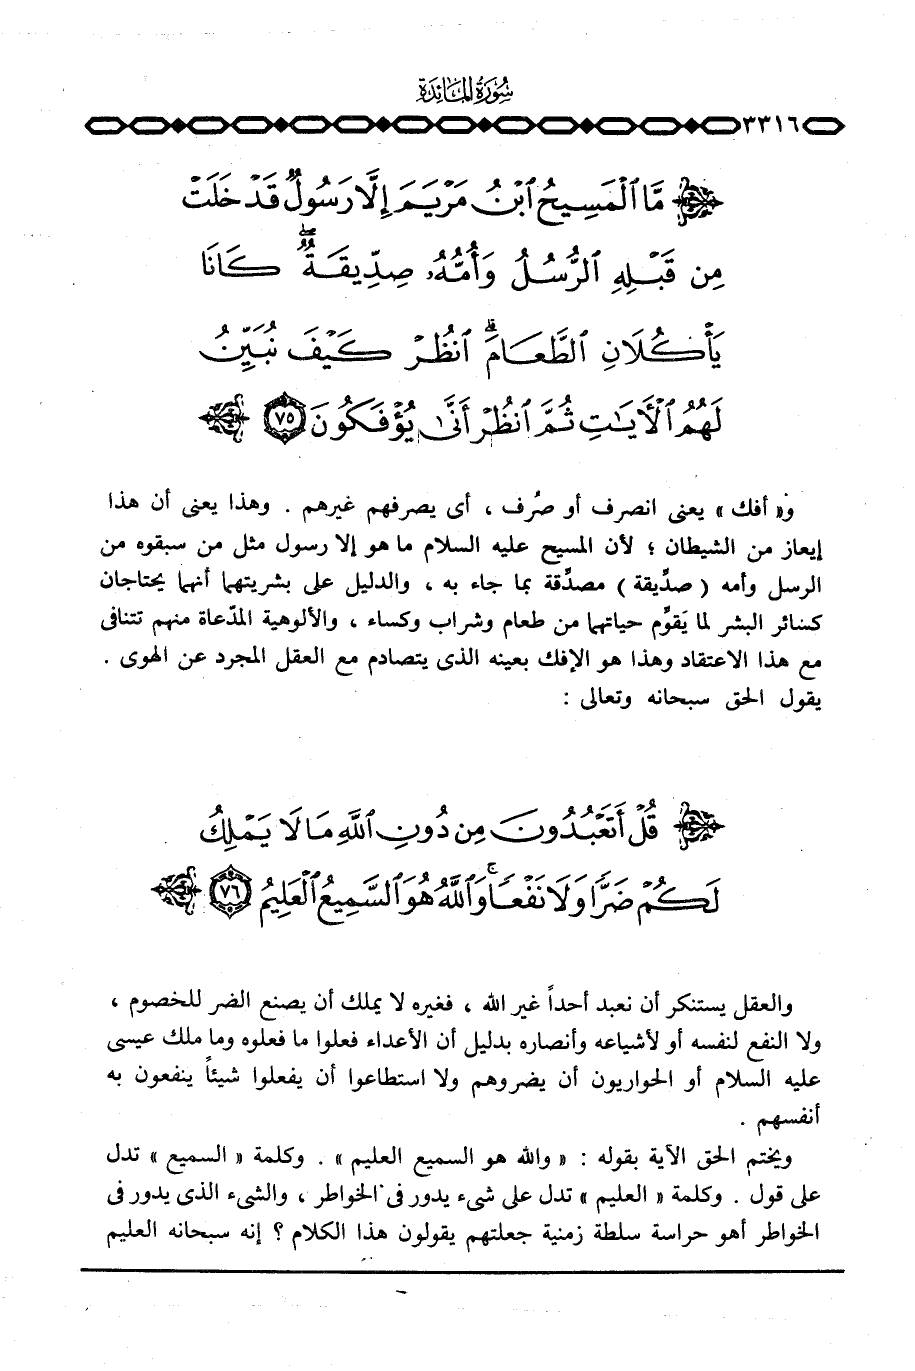 سُورَةُ المَائِدَةِ
٣٣١٦
مَّا ٱلْمَسِيحُ ٱبْنُ مَرْيَمَ إِلَّا رَسُولٌ قَدْ خَلَتْ
مِن قَبْلِهِ ٱلرُّسُلُ وَأُمُّهُۥ صِدِّيقَةٌ ۖ كَانَا
يَأْكُلَانِ ٱلطَّعَامَ ۗ ٱنظُرْ كَيْفَ نُبَيِّنُ
لَهُمُ ٱلْآيَٰتِ ثُمَّ ٱنظُرْ أَنَّىٰ يُؤْفَكُونَ ٧٥
و« أفك » يعنى انصرف أو صُرف ، أى يصرفهم غيرهم . وهذا يعنى أن هذا
إيعاز من الشيطان ؛ لأن المسيح عليه السلام ما هو إلا رسول مثل من سبقوه من
الرسل وأمه ( صدِّيقة ) مصدِّقة بما جاء به ، والدليل على بشريتهما أنهما يحتاجان
كسائر البشر لما يَقوِّم حياتهما من طعام وشراب وكساء ، والألوهية المدّعاة منهم تتنافى
مع هذا الاعتقاد وهذا هو الإفك بعينه الذى يتصادم مع العقل المجرد عن الهوى .
يقول الحق سبحانه وتعالى :
قُلْ أَتَعْبُدُونَ مِن دُونِ ٱللَّهِ مَا لَا يَمْلِكُ
لَكُمْ ضَرًّا وَلَا نَفْعًا ۚ وَٱللَّهُ هُوَ ٱلسَّمِيعُ ٱلْعَلِيمُ ٧٦
والعقل يستنكر أن نعبد أحداً غير الله ، فغيره لا يملك أن يصنع الضر للخصوم ،
ولا النفع لنفسه أو لأشياعه وأنصاره بدليل أن الأعداء فعلوا ما فعلوه وما ملك عيسى
عليه السلام أو الحواريون أن يضروهم ولا استطاعوا أن يفعلوا شيئاً ينفعون به
أنفسهم .
ويختم الحق الآية بقوله : « والله هو السميع العليم » . وكلمة « السميع » تدل
على قول . وكلمة « العليم » تدل على شىء يدور فى الخواطر ، والشىء الذى يدور فى
الخواطر أهو حراسة سلطة زمنية جعلتهم يقولون هذا الكلام ؟ إنه سبحانه العليم